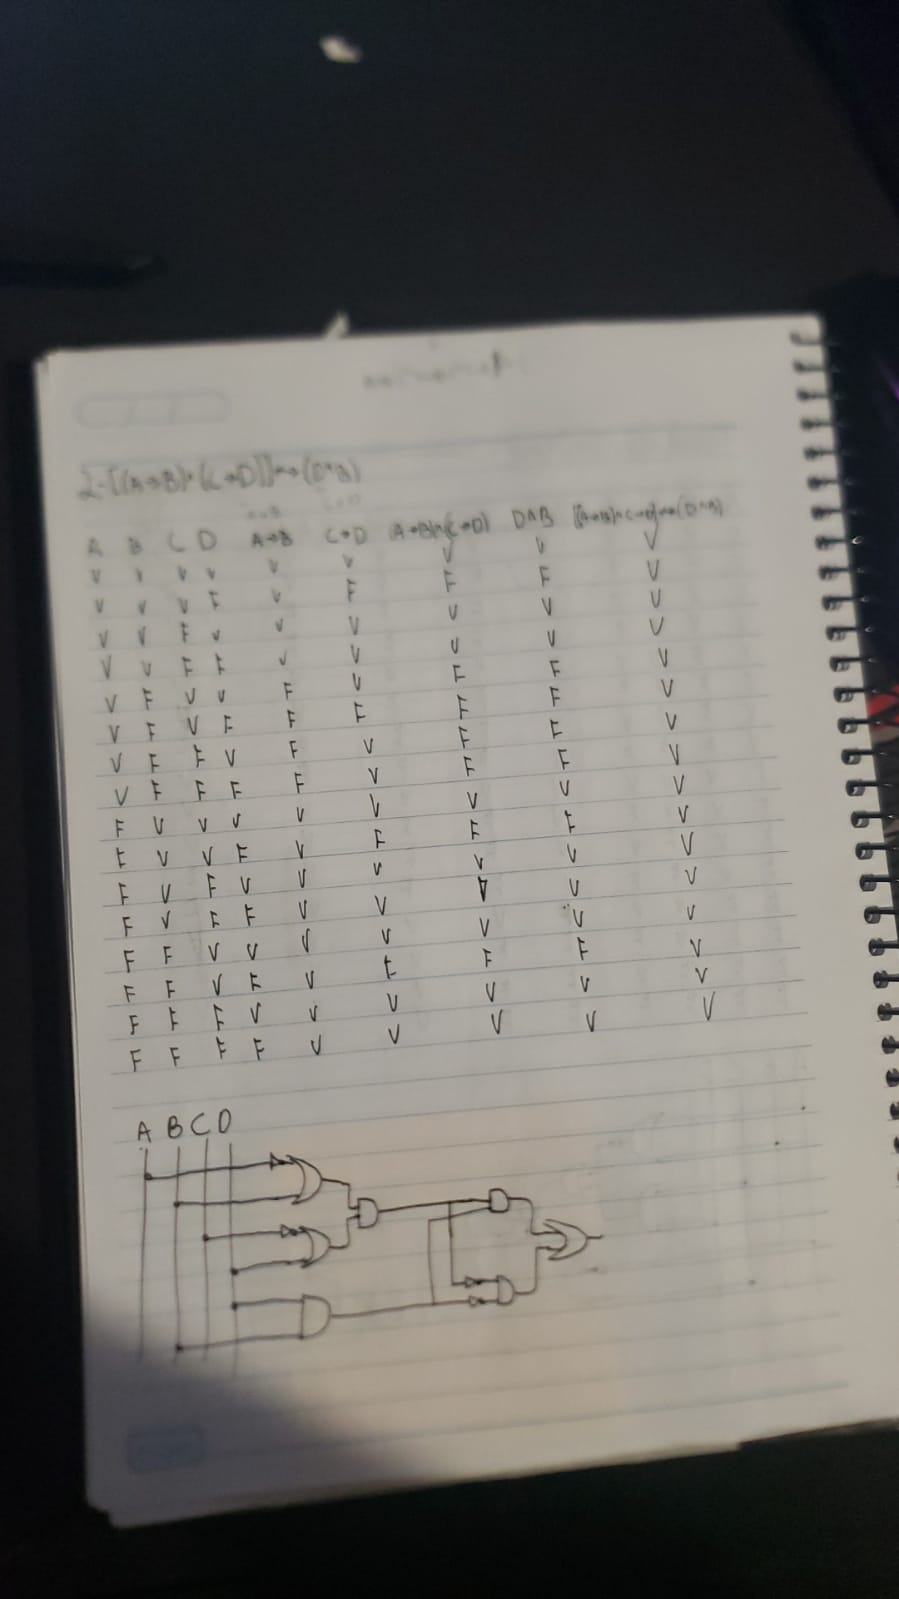 2-[(A→B)^(C→D)]↔(D^B)
A B C D A→B C→D (A→B)^(C→D) D^B [(A→B)^(C→D)]↔(D^B)
V V V V V V V V V
V V V F V F F F V
V V F V V V V V V
V V F F V V V V V
V F V V F V F F V
V F V F F F F F V
V F F V F V F F V
V F F F F V F F V
F V V V V V V V V
F V V F V F F F V
F V F V V V V V V
F V F F V V V V V
F F V V V V V V V
F F V F V F F F V
F F F V V V V V V
F F F F V V V V V
A B C D